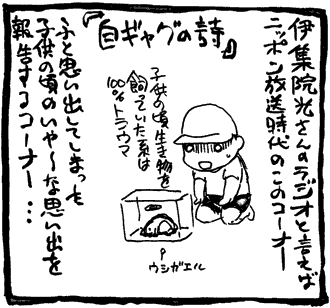 伊集院光さんのラジオと言えば
ニッポン放送時代のこのコーナー
『自ギャグの詩』
子供の頃生き物を
飼っていた系は
100%トラウマ
ウシガエル
ふと思い出してしまった
子供の頃のいや～な思い出を
報告するコーナー…